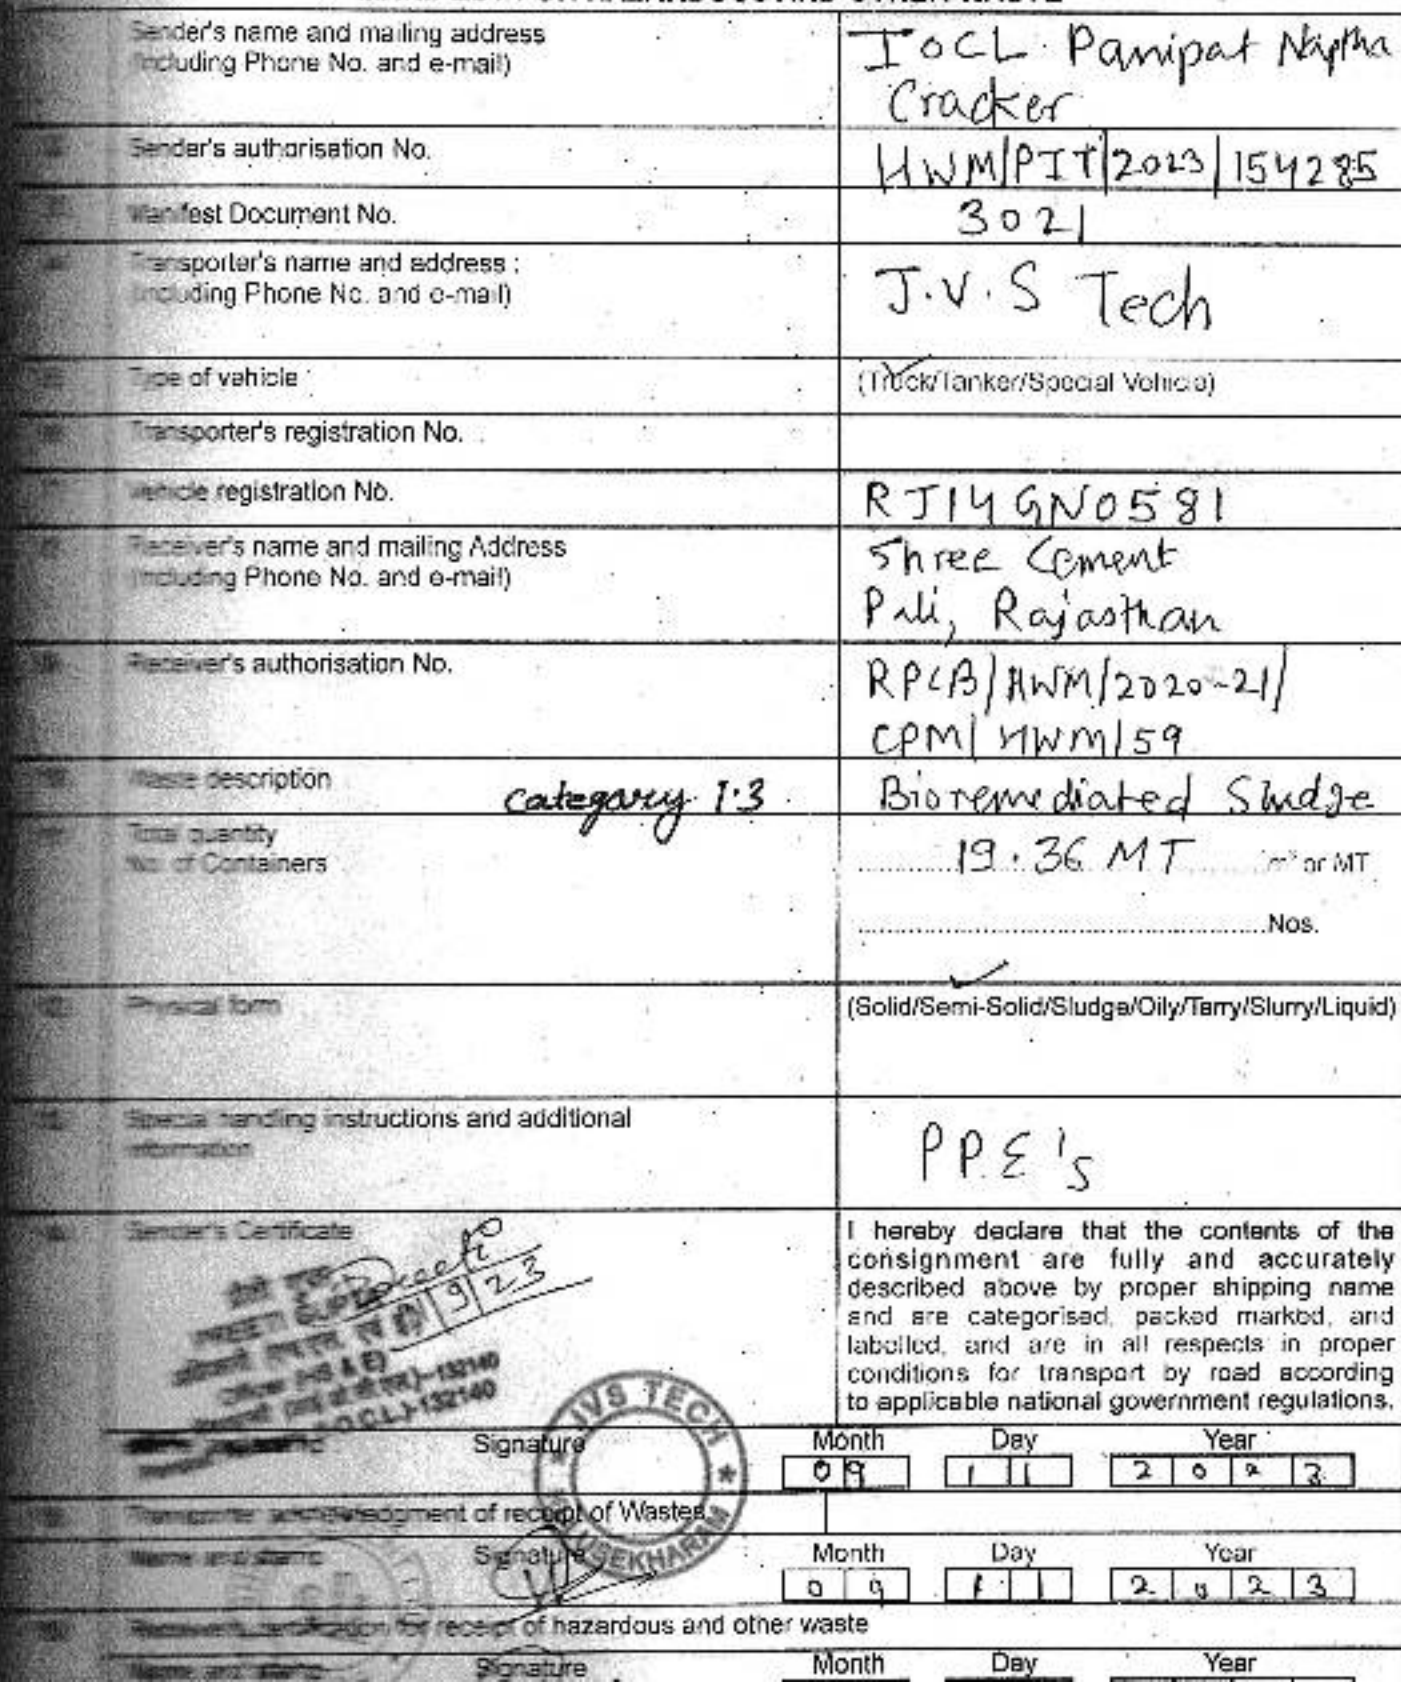 Sender's name and mailing address
(including Phone No. and e-mail)
IOCL Panipat Naptha
Cracker
Sender's authorisation No.
HWM/PIT/2023/154285
Manifest Document No.
3021
Transporter's name and address :
(including Phone No. and e-mail)
J.V.S Tech
Type of vehicle
(Truck/Tanker/Special Vehicle)
Transporter's registration No.
Vehicle registration No.
RJ14GN0581
Receiver's name and mailing Address
(including Phone No. and e-mail)
Shree Cement
Pali, Rajasthan
Receiver's authorisation No.
RPCB/HWM/2020-21/
CPM/HWM/59
Waste description
categary 1.3
Bioremediated Sludge
Total quantity
No. of Containers
19.36 MT m³ or MT
Nos.
Physical form
(Solid/Semi-Solid/Sludge/Oily/Tarry/Slurry/Liquid)
Special handling instructions and additional
information
PPE's
Sender's Certificate
I hereby declare that the contents of the
consignment are fully and accurately
described above by proper shipping name
and are categorised, packed marked, and
labelled, and are in all respects in proper
conditions for transport by road according
to applicable national government regulations.
Preeti
9/23
PREETI GUPTA
-132140
(I.O.C.L.)-132140
JVS TECH
Signature Month Day Year
09 11 2023
Transporter acknowledgment of receipt of Wastes
Name and stamp Signature Month Day Year
09 11 2023
Receiver's certification for receipt of hazardous and other waste
Name and stamp Signature Month Day Year